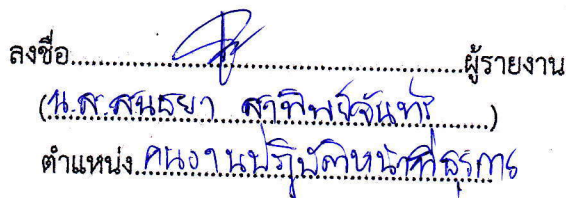 ลงชื่อ........................................ผู้รายงาน
(น.ส.สนธยา สาทิพย์จันทร์)
ตำแหน่ง คนงานปฏิบัติหน้าที่ธุรการ